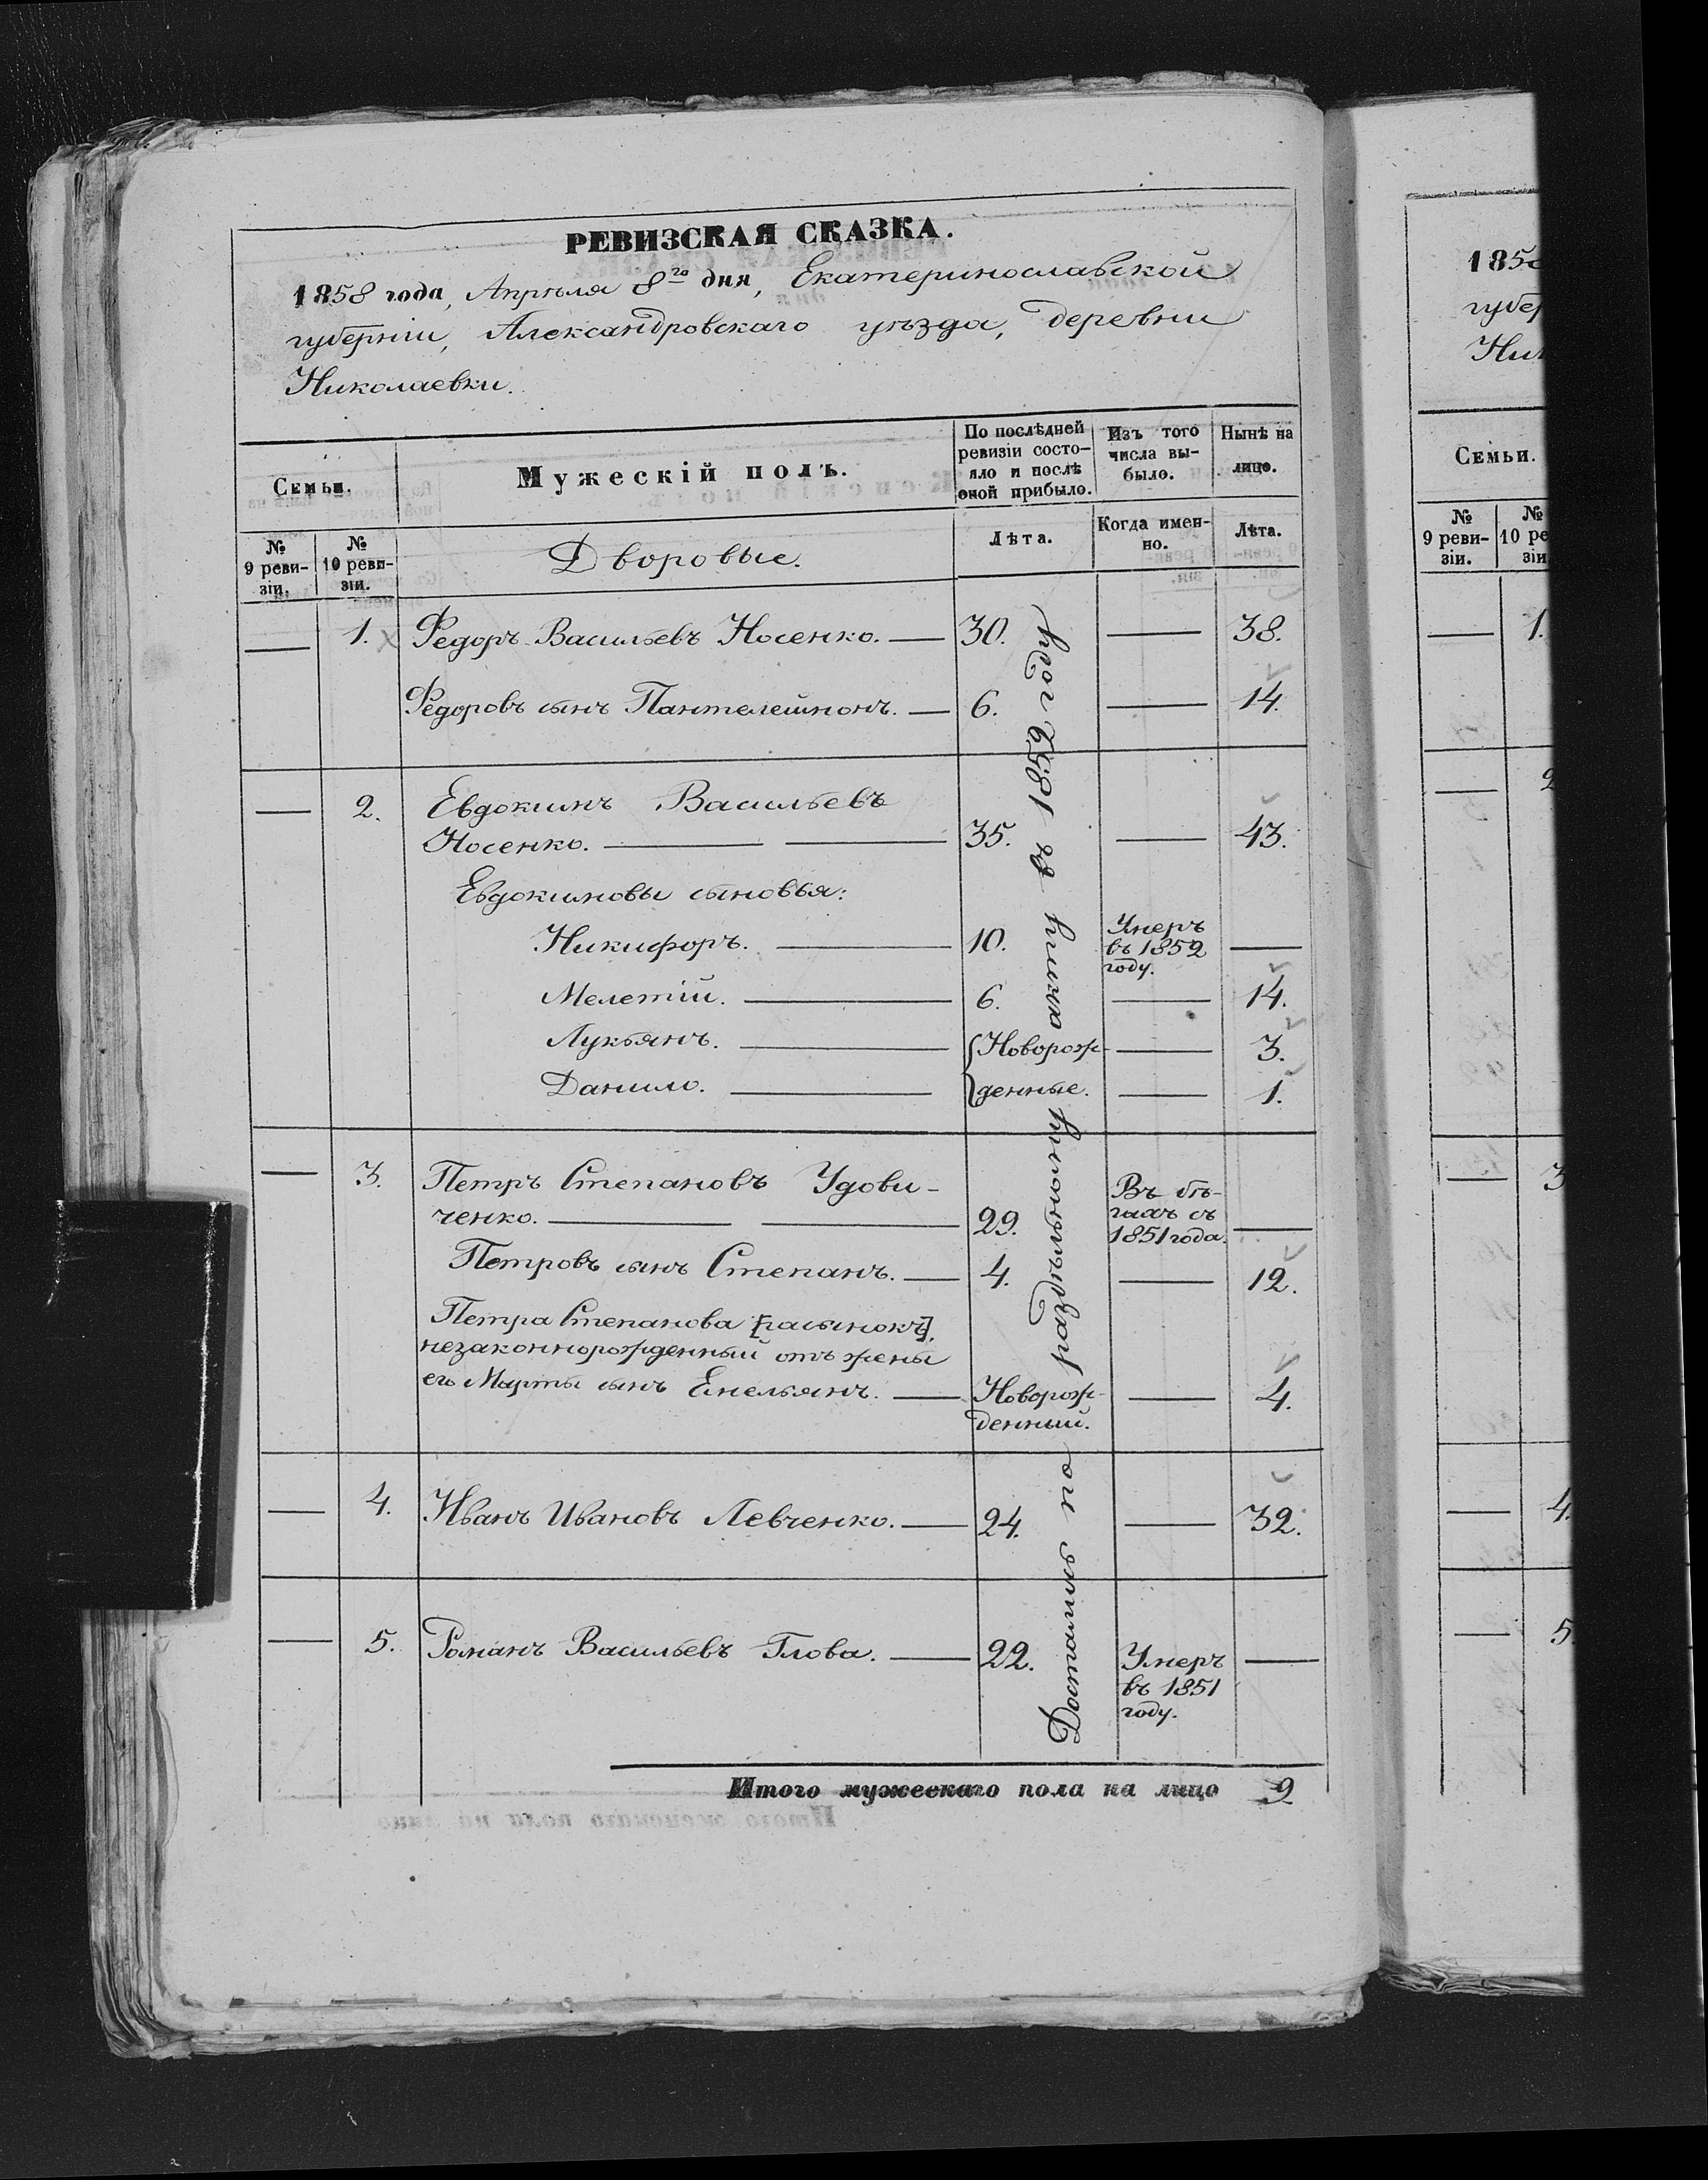 РЕВИЗСКАЯ СКАЗКА.
1858 года, Апрѣля 8го дня, Екатеринославской
губерніи, Александровскаго уѣзда, деревни
Николаевки.
Семьи.
Мужескій полъ.
По послѣдней
ревизіи состо-
яло и послѣ
оной прибыло.
Изъ того
числа вы-
было.
Нынѣ на
лицо.
№
9 реви-
зіи.
№
10 реви-
зіи.
Дворовые.
Лѣта.
Когда имен-
но.
Лѣта.
— 1. Федоръ Васильевъ Носенко. — 30. — 38.
Федоровъ сынъ Пантелеимонъ. — 6. — 14.
— 2. Евдокимъ Васильевъ
Носенко. — 35. — 43.
Евдокимовы сыновья:
Никифоръ. — 10. Умеръ
въ 1852
году. —
Мелетій. — 6. — 14.
Лукьянъ. — Новорож- — 3.
Данило. — денные. — 1.
— 3. Петръ Степановъ Удови-
ченко. — 29. Въ бѣ-
гахъ съ
1851 года. —
Петровъ сынъ Степанъ. — 4. — 12.
Петра Степанова [пасынокъ],
незаконнорожденный отъ жены
его Марты сынъ Емельянъ. — Новорож-
денный. — 4.
— 4. Иванъ Ивановъ Левченко. — 24. — 32.
— 5. Романъ Васильевъ Глова. — 22. Умеръ
въ 1851
году. —
Достались по раздѣльному акту въ 1852 году
Итого мужескаго пола на лицо 9
185
губер
Ни
Семьи.
№
9 реви-
зіи.
№
10 ре
зіи
— 1.
— 2
— 3
— 4.
— 5.